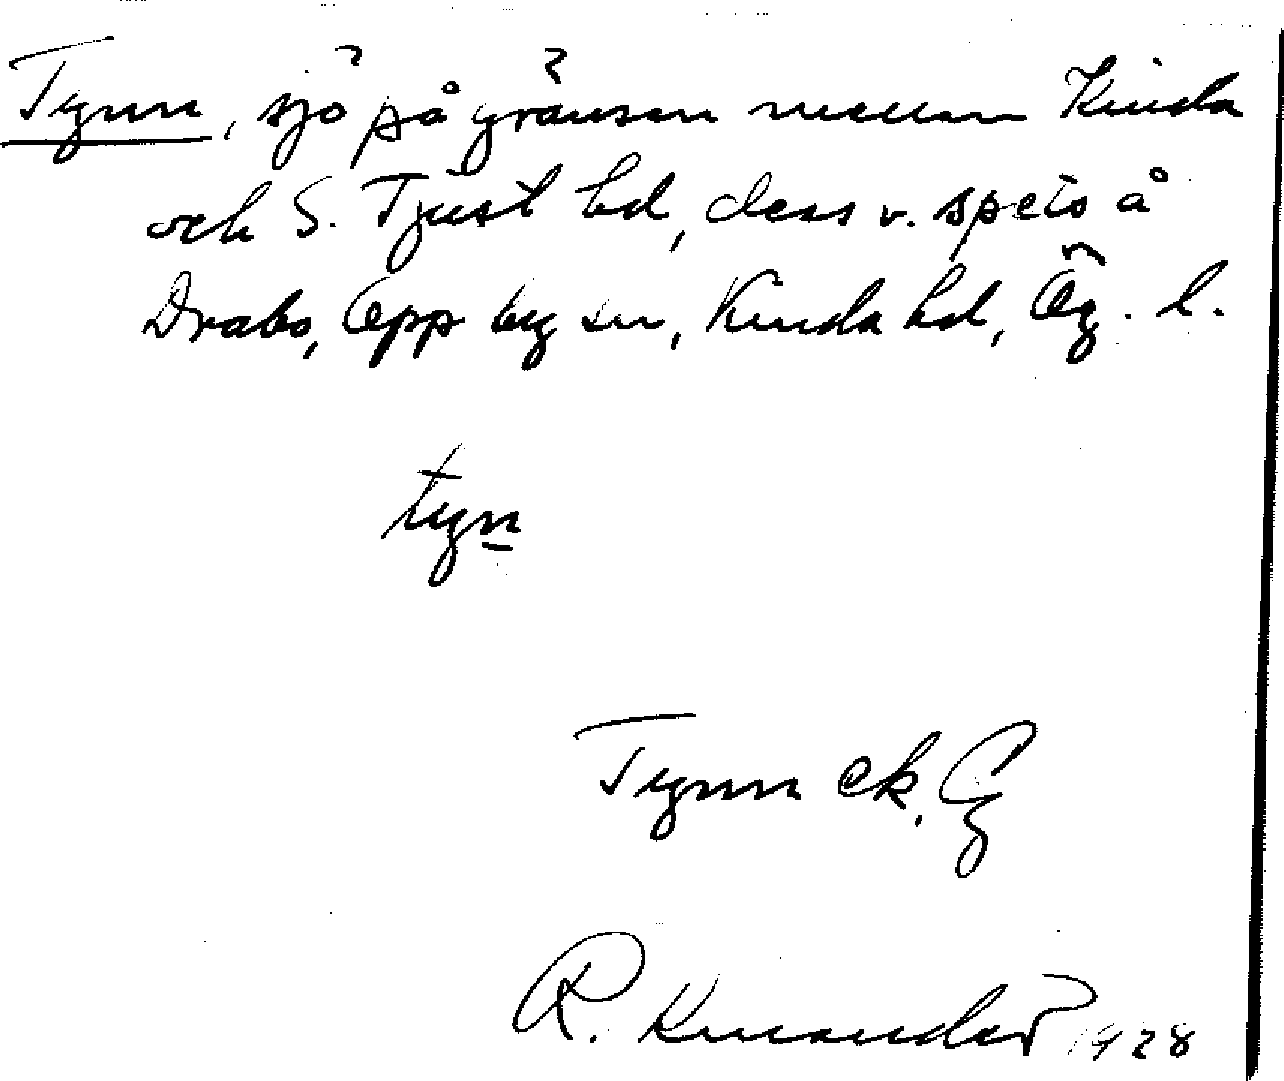 Tynn, sjö på gränsen mellan Kinda
och S. Tjust hd, dess v. spets å
Drabo, Oppeby sn, Kinda hd, Ög. l.
tyn
Tynn ek. G
R. Kinander 1928